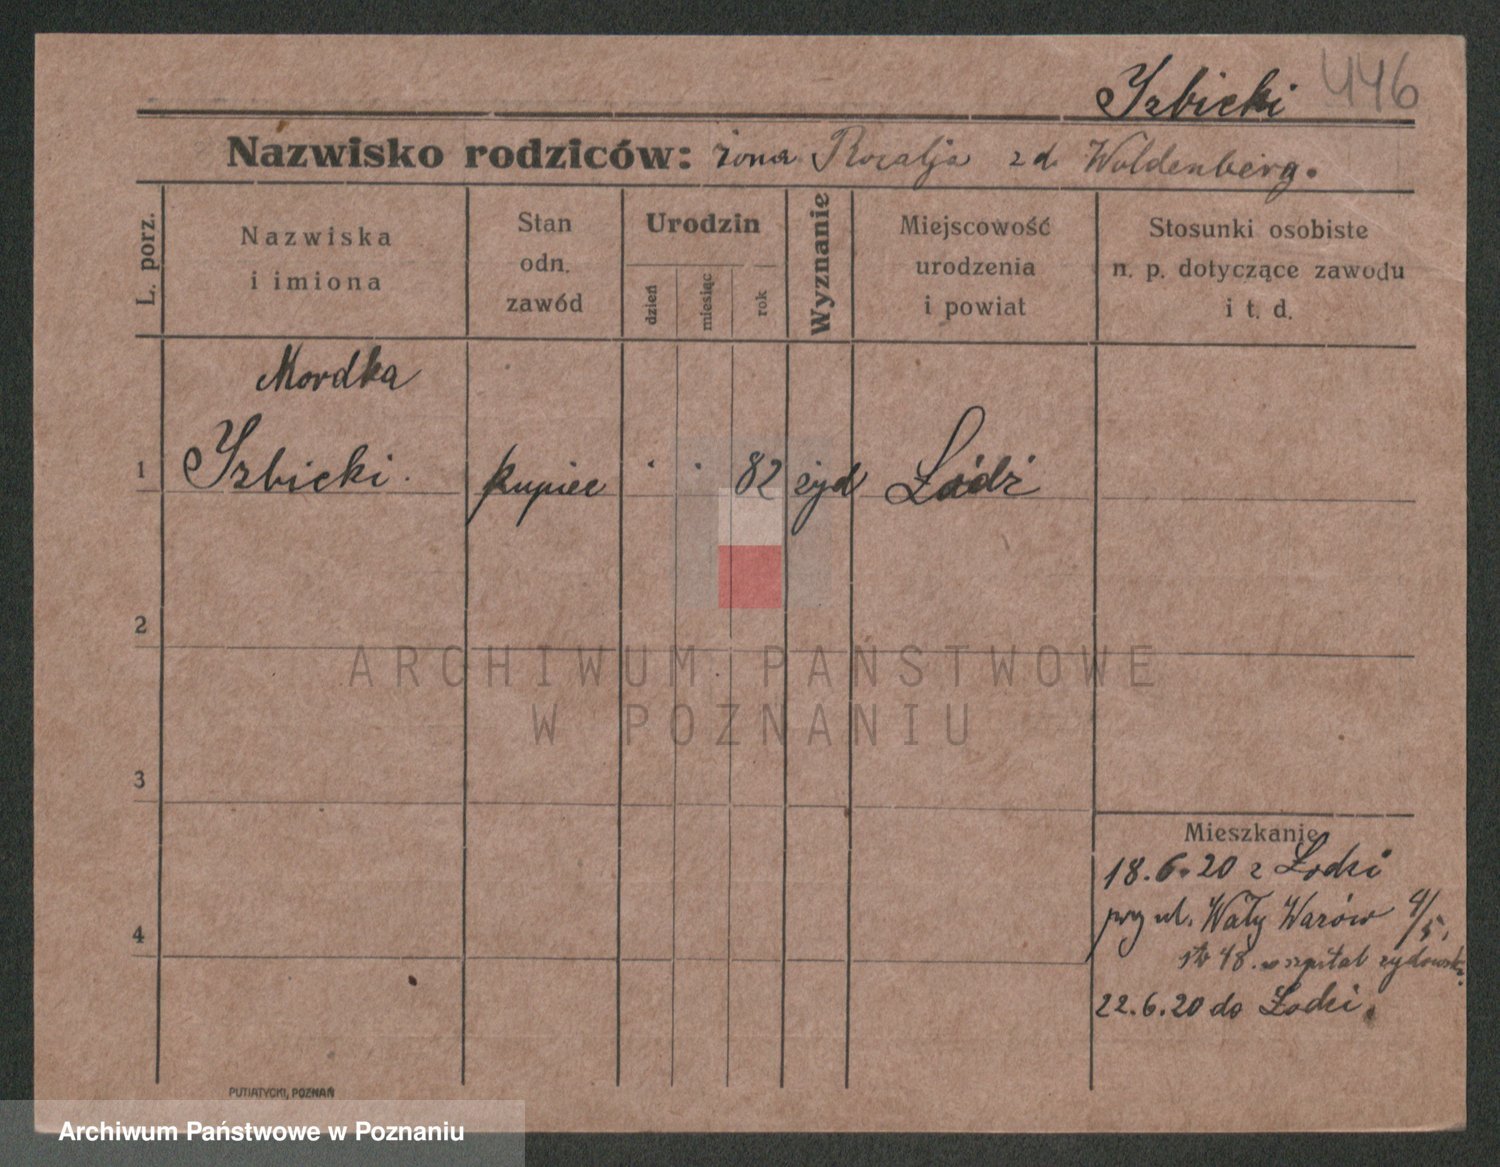 Izbicki 446
Nazwisko rodziców: żona Rozalja z d. Woldenberg.
L. porz.
Nazwiska
i imiona
Stan
odn.
zawód
Urodzin
dzień
miesiąc
rok
Wyznanie
Miejscowość
urodzenia
i powiat
Stosunki osobiste
n. p. dotyczące zawodu
i t. d.
Mordka
1 Izbicki. kupiec . . 82 żyd Łódź
2
3
4
Mieszkanie
18.6.20 z Łodzi
przy ul. Wały Wazów 4/5.
48. szpital żydowski
22.6.20 do Łodzi.
PUTIATYCKI, POZNAŃ
ARCHIWUM PAŃSTWOWE
W POZNANIU
Archiwum Państwowe w Poznaniu